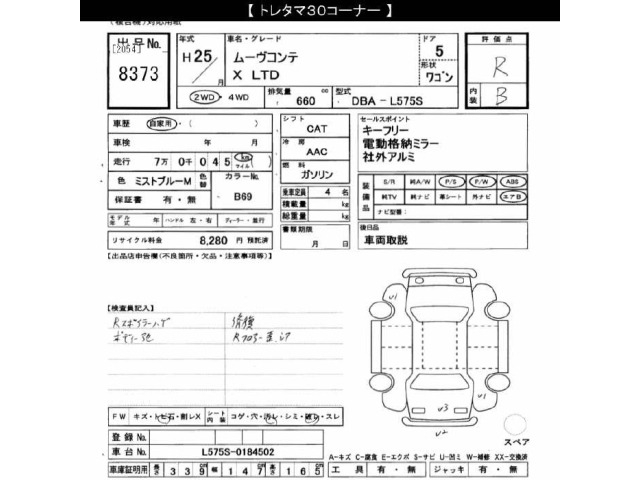 【 トレタマ30コーナー 】
(複合機)対応用紙
出品No.
[2054]
8373
年式
H 25 年
月
車名・グレード
ムーヴコンテ
X LTD
ドア
5
形状
ワゴン
評価点
R
内装
B
2WD・4WD
排気量
660 cc
型式
DBA - L575S
車歴 自家用・( )
車検 年 月
走行 7万 0千 0 4 5 km マイル
色 ミストブルーM
色替
カラーNo.
B69
保証書 有・無
モデル年式 年
ハンドル 左・右
ディーラー・並行
リサイクル料金 8,280 円 預託済
シフト
CAT
冷房
AAC
燃料
ガソリン
乗車定員 4 名
積載量 kg
総重量 kg
書類期限
月 日
セールスポイント
キーフリー
電動格納ミラー
社外アルミ
装備品
S/R 純A/W P/S P/W ABS
純TV 純ナビ 革シート 外ナビ エアB
ナビ型番:
後日品
車両取説
【出品店申告欄(不良箇所・欠品・注意事項等)】
【検査員記入】
Rスポイラーハゲ
修復
u1
v1
u3
u2
スペア
FW キズ・トビ石・割レX
シート内装 コゲ・穴・汚レ・シミ・破レ・スレ
登録No.
車台No. L575S-0184502
車庫証明用 長さ 3 3 9 cm 幅 1 4 7 cm 高さ 1 6 5 cm
A-キズ C-腐食 E-エクボ S-サビ U-凹ミ W-補修 XX-交換済
工具 有・無 ジャッキ 有・無